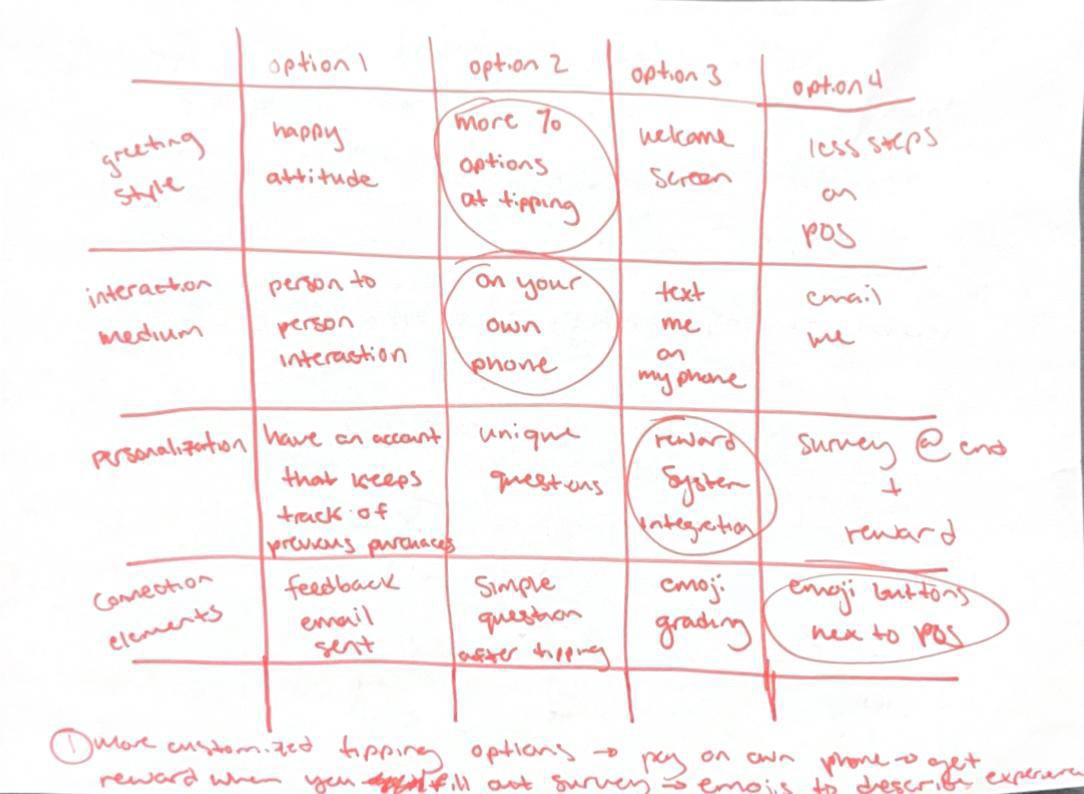 option 1 option 2 option 3 option 4
greeting style
happy
attitude
more %
options
at tipping
welcome
screen
less steps
on
POS
interaction
medium
person to
person
interaction
on your
own
phone
text
me
on
my phone
email
me
personalization
have an account
that keeps
track of
previous purchaces
unique
questions
reward
system
integration
survey @ end
+
reward
connection
elements
feedback
email
sent
simple
question
after tipping
emoji
grading
emoji buttons
nex to POS
① more customized tipping options → pay on own phone → get
reward when you fill out survey → emojis to describe experience